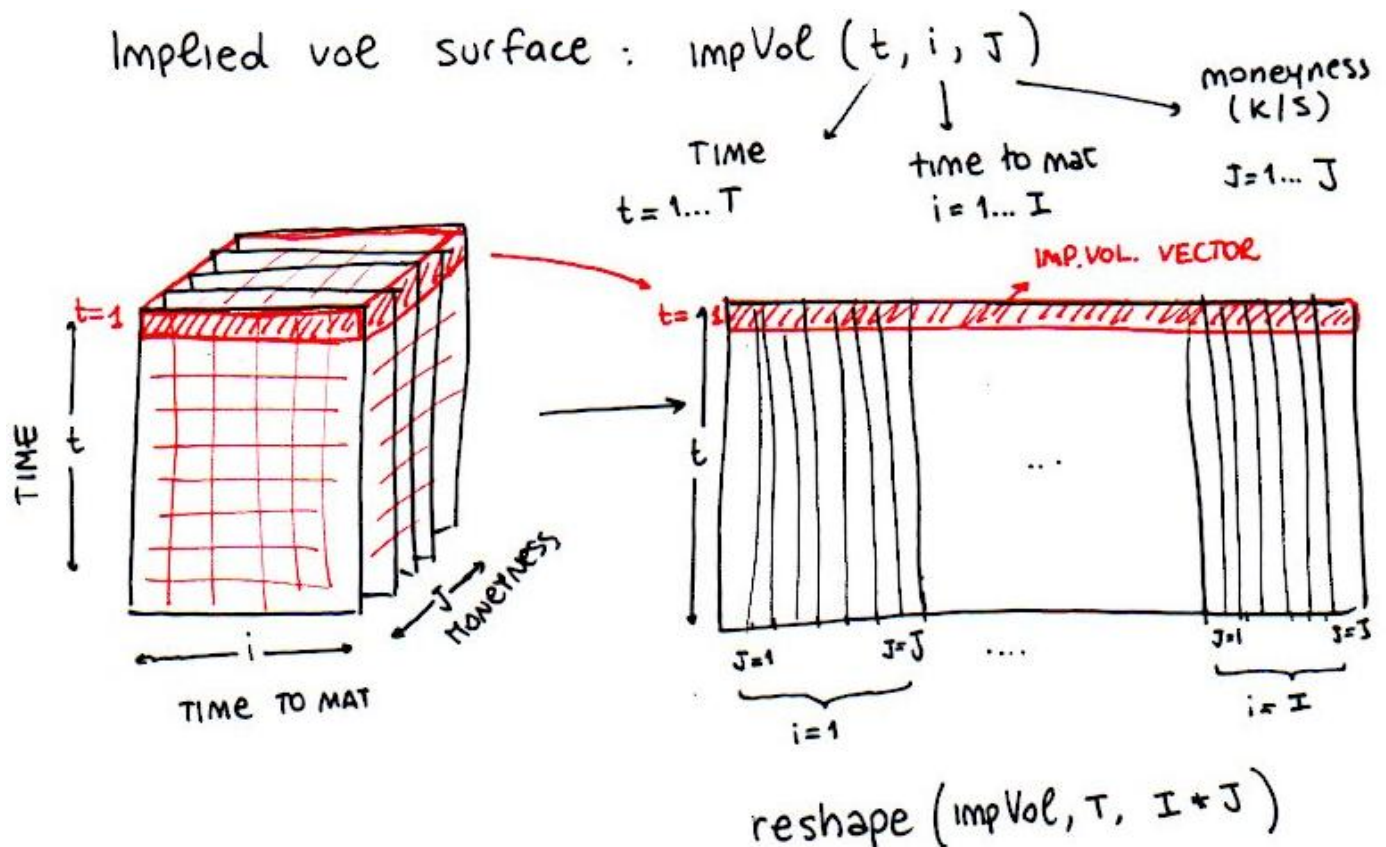 Implied vol surface : impVol (t, i, J)
TIME
t = 1... T
time to mat
i = 1... I
moneyness
(K/S)
J = 1... J
t=1
TIME
t
i
TIME TO MAT
J
MONEYNESS
IMP.VOL. VECTOR
t=1
t
...
J=1
J=J
....
J=1
J=J
i=1
i=I
reshape (impVol, T, I * J)